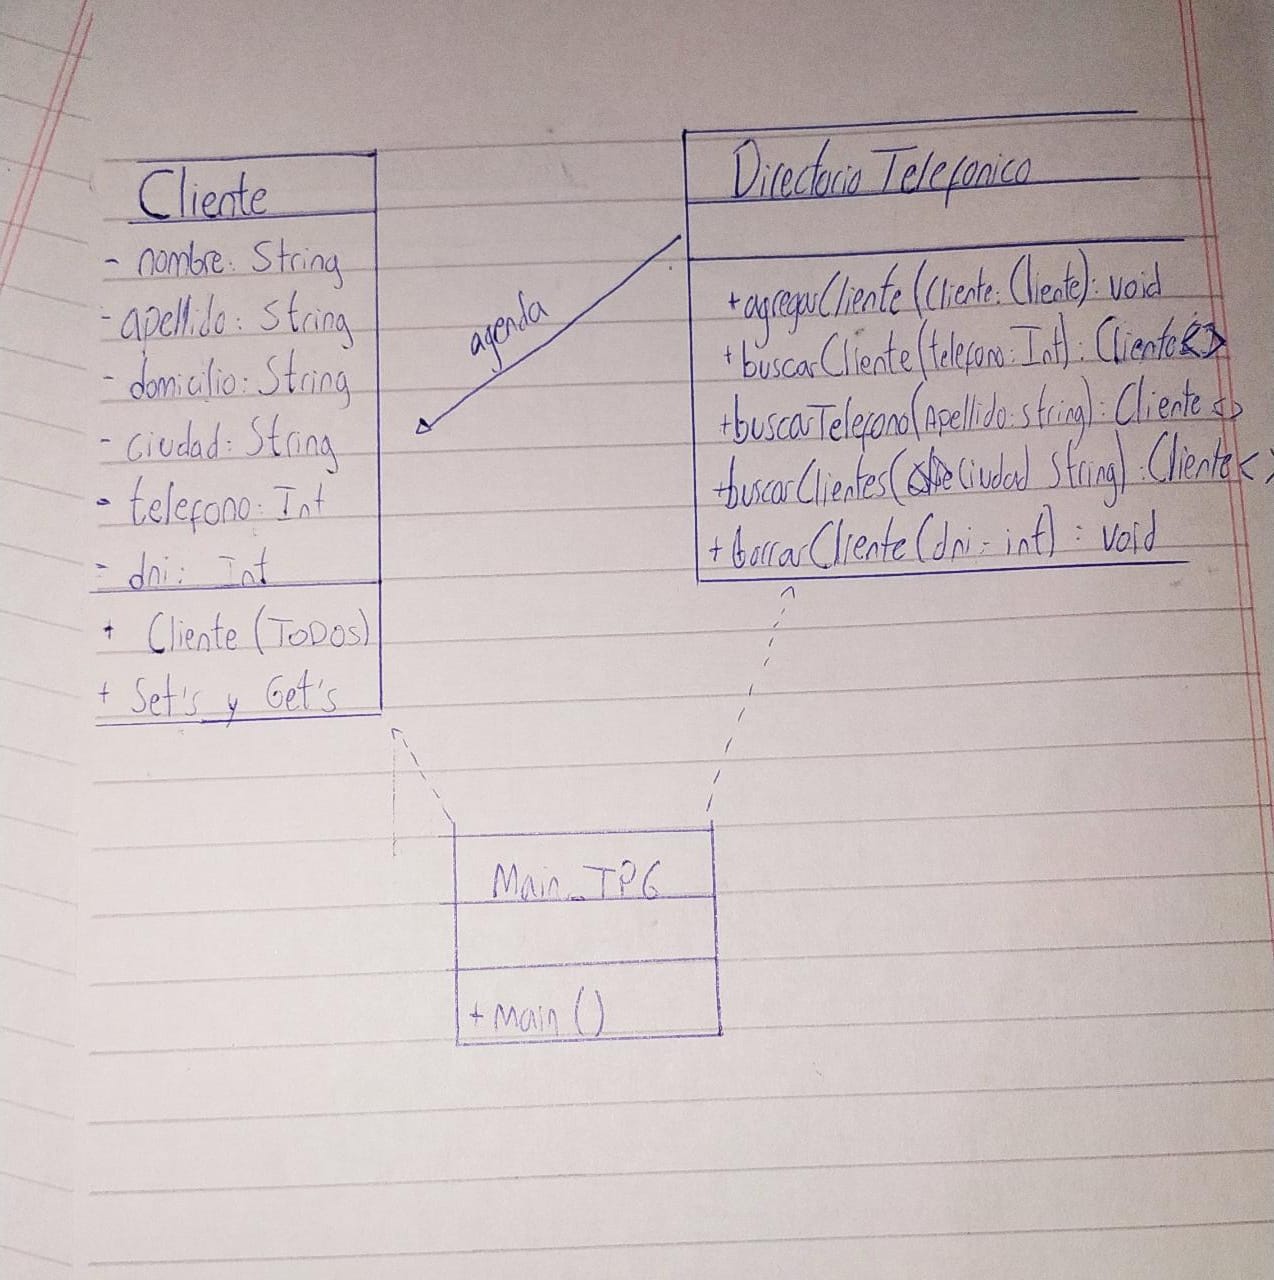 Cliente
- nombre: String
- apellido: String
- domicilio: String
- ciudad: String
- telefono: Int
- dni: Int
+ Cliente (TODOS)
+ Set's y Get's
agenda
Directorio Telefonico
+agregarCliente (Cliente: Cliente): void
+buscarCliente (telefono: Int): Cliente<>
+buscarTelefono (Apellido: string): Cliente <>
+buscarClientes (Ciudad String): Cliente< >
+ borrarCliente (dni - int) : void
Main_TP6
+ main ()